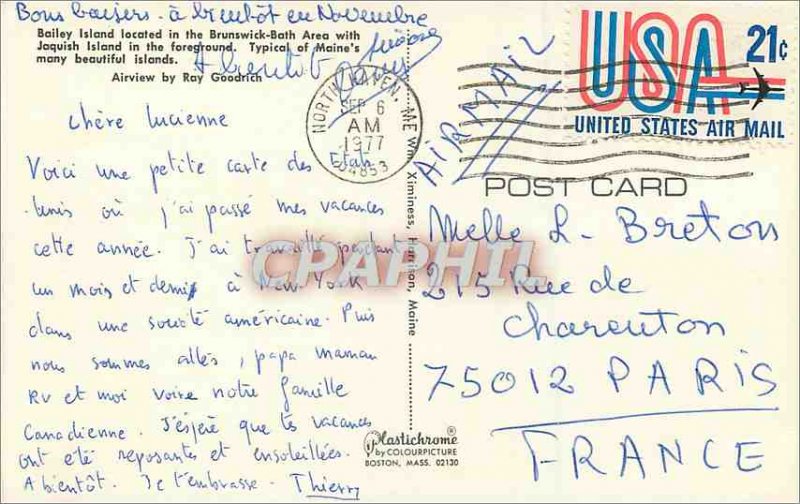 Bons baisers - à bientôt en Novembre
Bailey Island located in the Brunswick-Bath Area with
Jaquish Island in the foreground. Typical of Maine's
many beautiful islands.
Airview by Ray Goodrich
A bientôt
Chère Lucienne
Voici une petite carte des Etats
-Unis où j'ai passé mes vacances
cette année. J'ai travaillé pendant
un mois et demi à New York
dans une société américaine. Puis
nous sommes allés, papa maman
RV et moi voire notre famille
Canadienne. J'espère que tes vacances
ont été reposantes et ensoleillées.
A bientôt. Je t'embrasse. Thierry
NORTH HAVEN, ME
SEP 6
AM
1977
04853
USA 21c
UNITED STATES AIR MAIL
AIR MAIL
POST CARD
Melle L. Breton
215 Rue de
Charenton
75012 PARIS
FRANCE
Wm. Ximiness, Harrison, Maine
Plastichrome®
by COLOURPICTURE
BOSTON, MASS. 02130
CPAPHIL